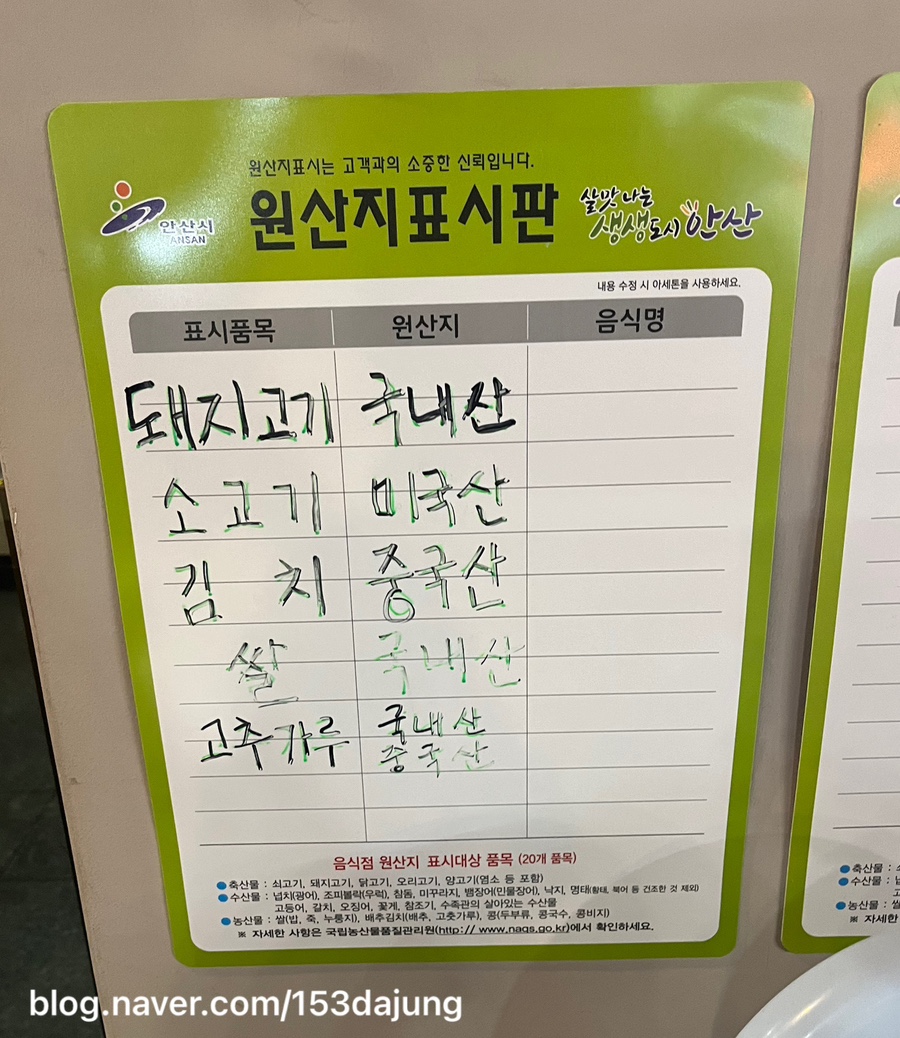 원산지표시는 고객과의 소중한 신뢰입니다.
안산시
ANSAN
원산지표시판
살맛 나는
생생도시 안산
내용 수정 시 아세톤을 사용하세요.
표시품목 원산지 음식명
돼지고기 국내산
소고기 미국산
김치 중국산
쌀 국내산
고추가루 국내산
중국산
음식점 원산지 표시대상 품목 (20개 품목)
●축산물 : 쇠고기, 돼지고기, 닭고기, 오리고기, 양고기(염소 등 포함)
●수산물 : 넙치(광어), 조피볼락(우럭), 참돔, 미꾸라지, 뱀장어(민물장어), 낙지, 명태(황태, 북어 등 건조한 것 제외)
고등어, 갈치, 오징어, 꽃게, 참조기, 수족관의 살아있는 수산물
●농산물 : 쌀(밥, 죽, 누룽지), 배추김치(배추, 고춧가루), 콩(두부류, 콩국수, 콩비지)
※ 자세한 사항은 국립농산물품질관리원(http://www.naqs.go.kr)에서 확인하세요.
●축산물 : 쇠
●수산물 : 넙
고
●농산물 : 쌀
※ 자세한
blog.naver.com/153dajung